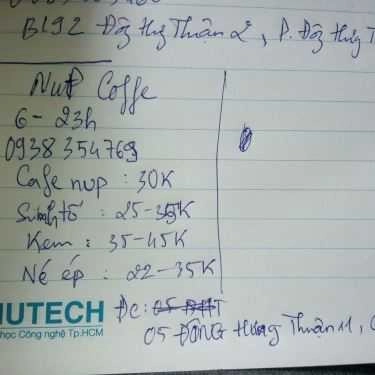 B192 Đông Hưng Thuận 2, P. Đông Hưng T
Nup Coffe
6 - 23h
0938 354 769
Cafe nup : 30K
Sinh tố : 25-35K
Kem : 35-45K
Né ép : 22-35K
HUTECH
học Công nghệ Tp.HCM
Đc:
05 ĐÔNG Hưng Thuận 11,